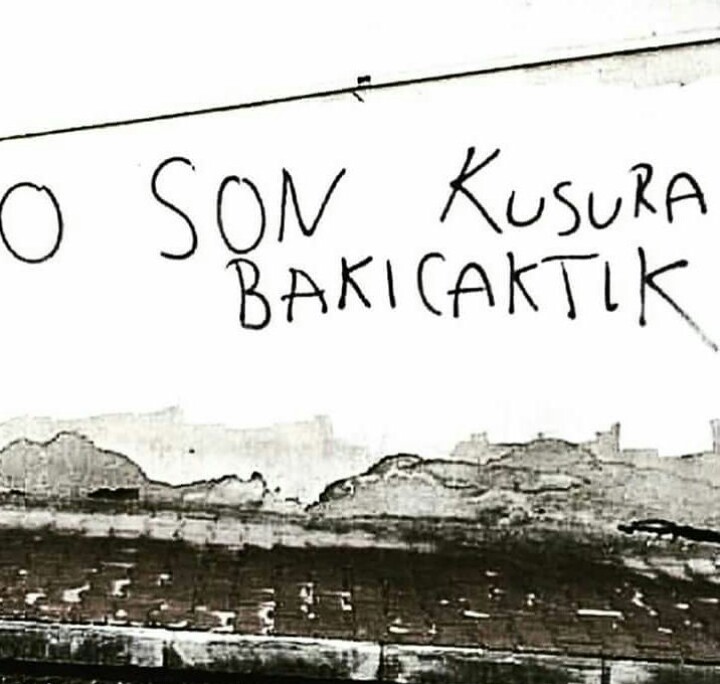 O SON KUSURA
BAKICAKTIK